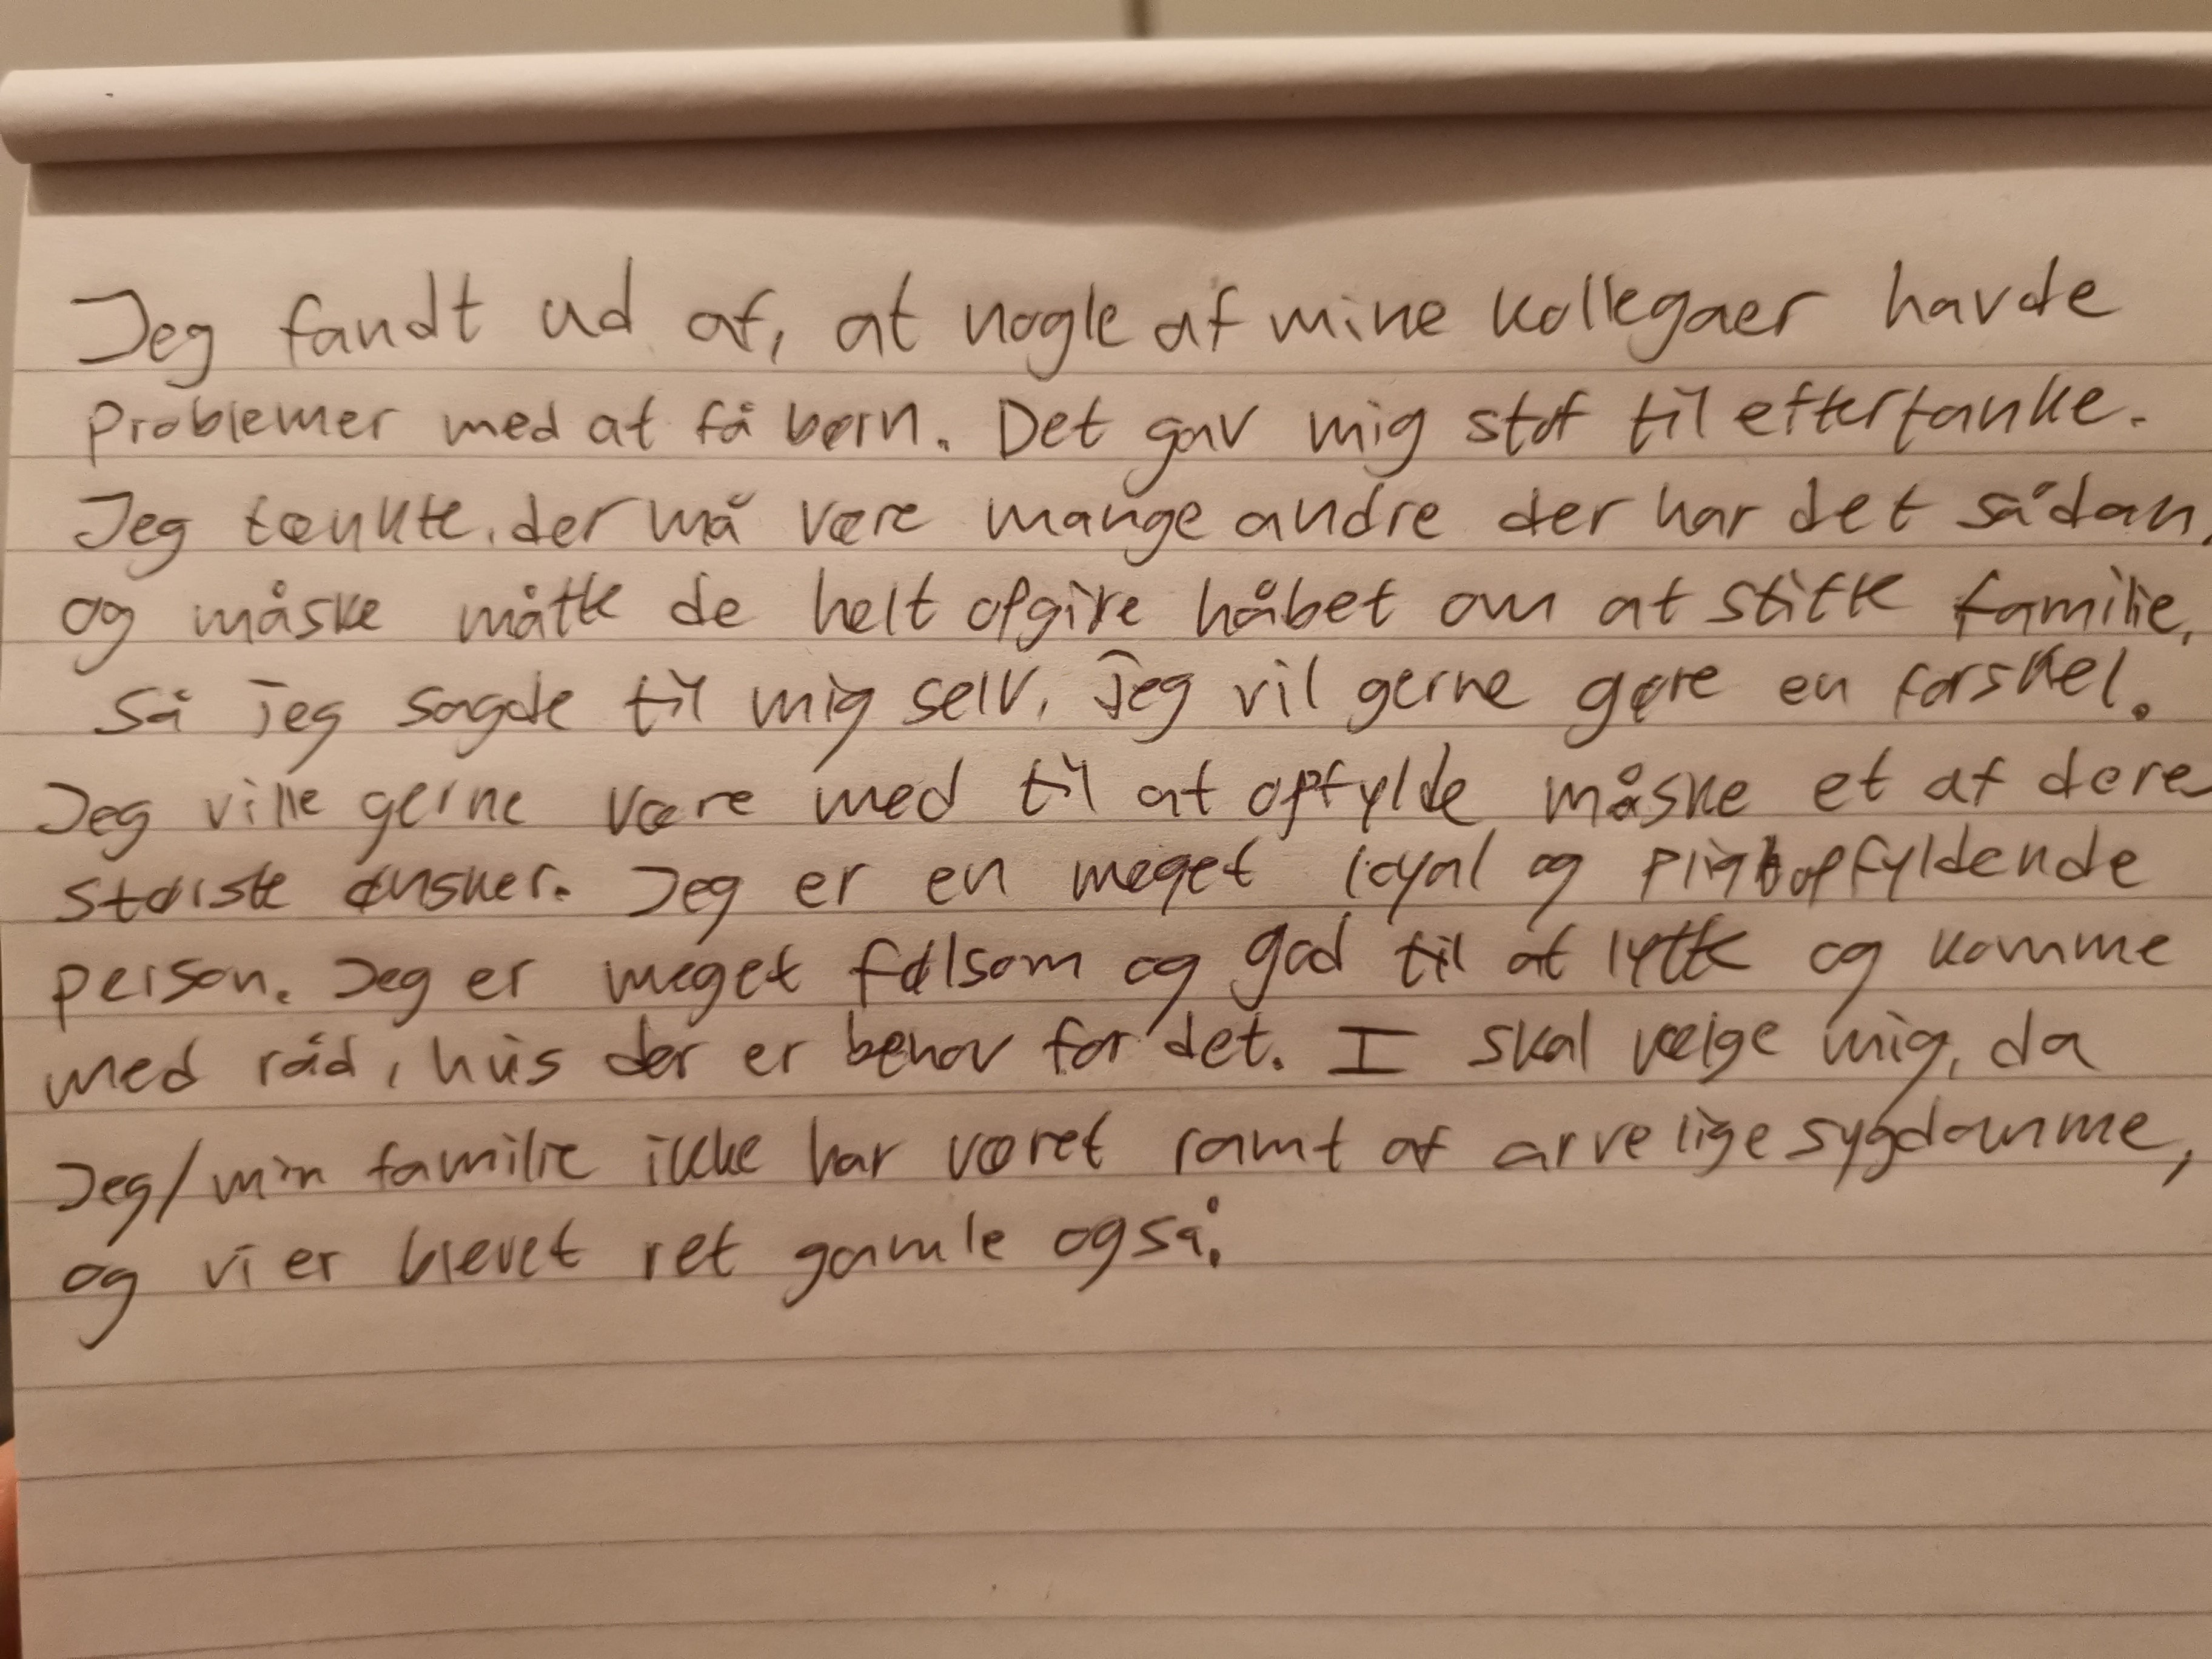 Jeg fandt ud af, at nogle af mine kollegaer havde
problemer med at få børn. Det gav mig stof til eftertanke.
Jeg tænkte, der må være mange andre der har det sådan,
og måske måtte de helt opgive håbet om at stifte familie,
Så jeg sagde til mig selv, jeg vil gerne gøre en forskel.
Jeg ville gerne være med til at opfylde måske et af deres
største ønsker. Jeg er en meget loyal og pligtopfyldende
person. Jeg er meget følsom og god til at lytte og komme
med råd, hvis der er behov for det. I skal vælge mig, da
Jeg/min familie ikke har været ramt af arvelige sygdomme,
og vi er blevet ret gamle også.